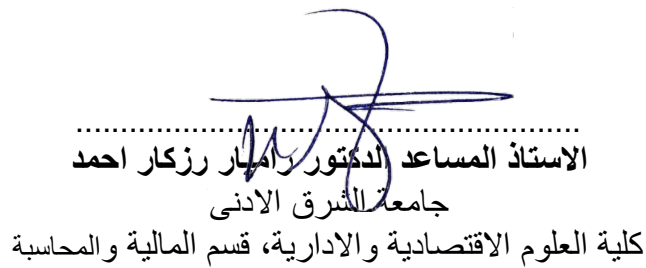 ........................................................
الاستاذ المساعد الدكتور راميار رزكار احمد
جامعة الشرق الادنى
كلية العلوم الاقتصادية والادارية، قسم المالية والمحاسبة